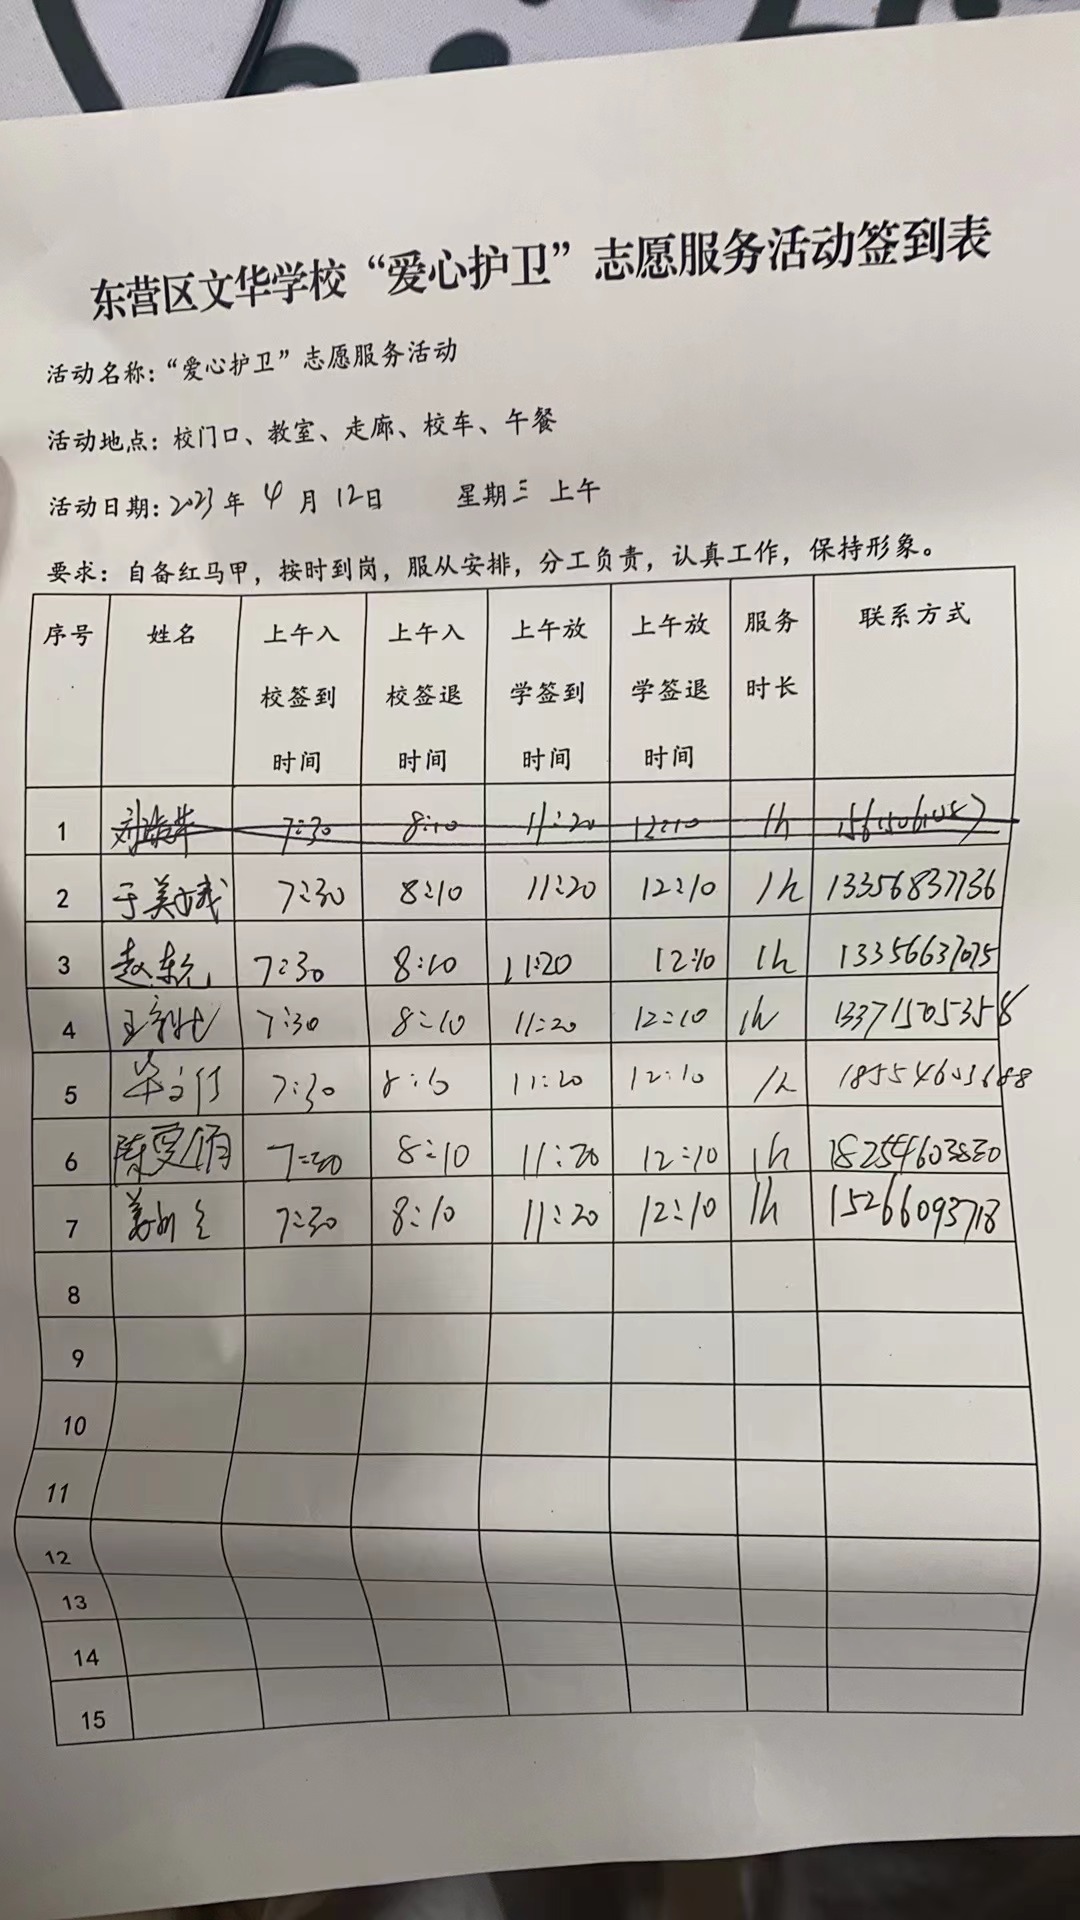 东营区文华学校“爱心护卫”志愿服务活动签到表
活动名称:“爱心护卫”志愿服务活动
活动地点:校门口、教室、走廊、校车、午餐
活动日期:2023年 4 月 12日 星期三 上午
要求:自备红马甲,按时到岗,服从安排,分工负责,认真工作,保持形象。
序号 姓名 上午入校签到时间 上午入校签退时间 上午放学签到时间 上午放学签退时间 服务时长 联系方式
1 7:30 8:10 11:20 12:10 1h
2 7:30 8:10 11:20 12:10 1h 13356837736
3 7:30 8:10 11:20 12:10 1h 13356637075
4 7:30 8:10 11:20 12:10 1h
5 7:30 11:20 12:10 1h
6 7:30 8:10 11:20 12:10 1h 18254603830
7 7:30 8:10 11:20 12:10 1h 15266093718
8
9
10
11
12
13
14
15